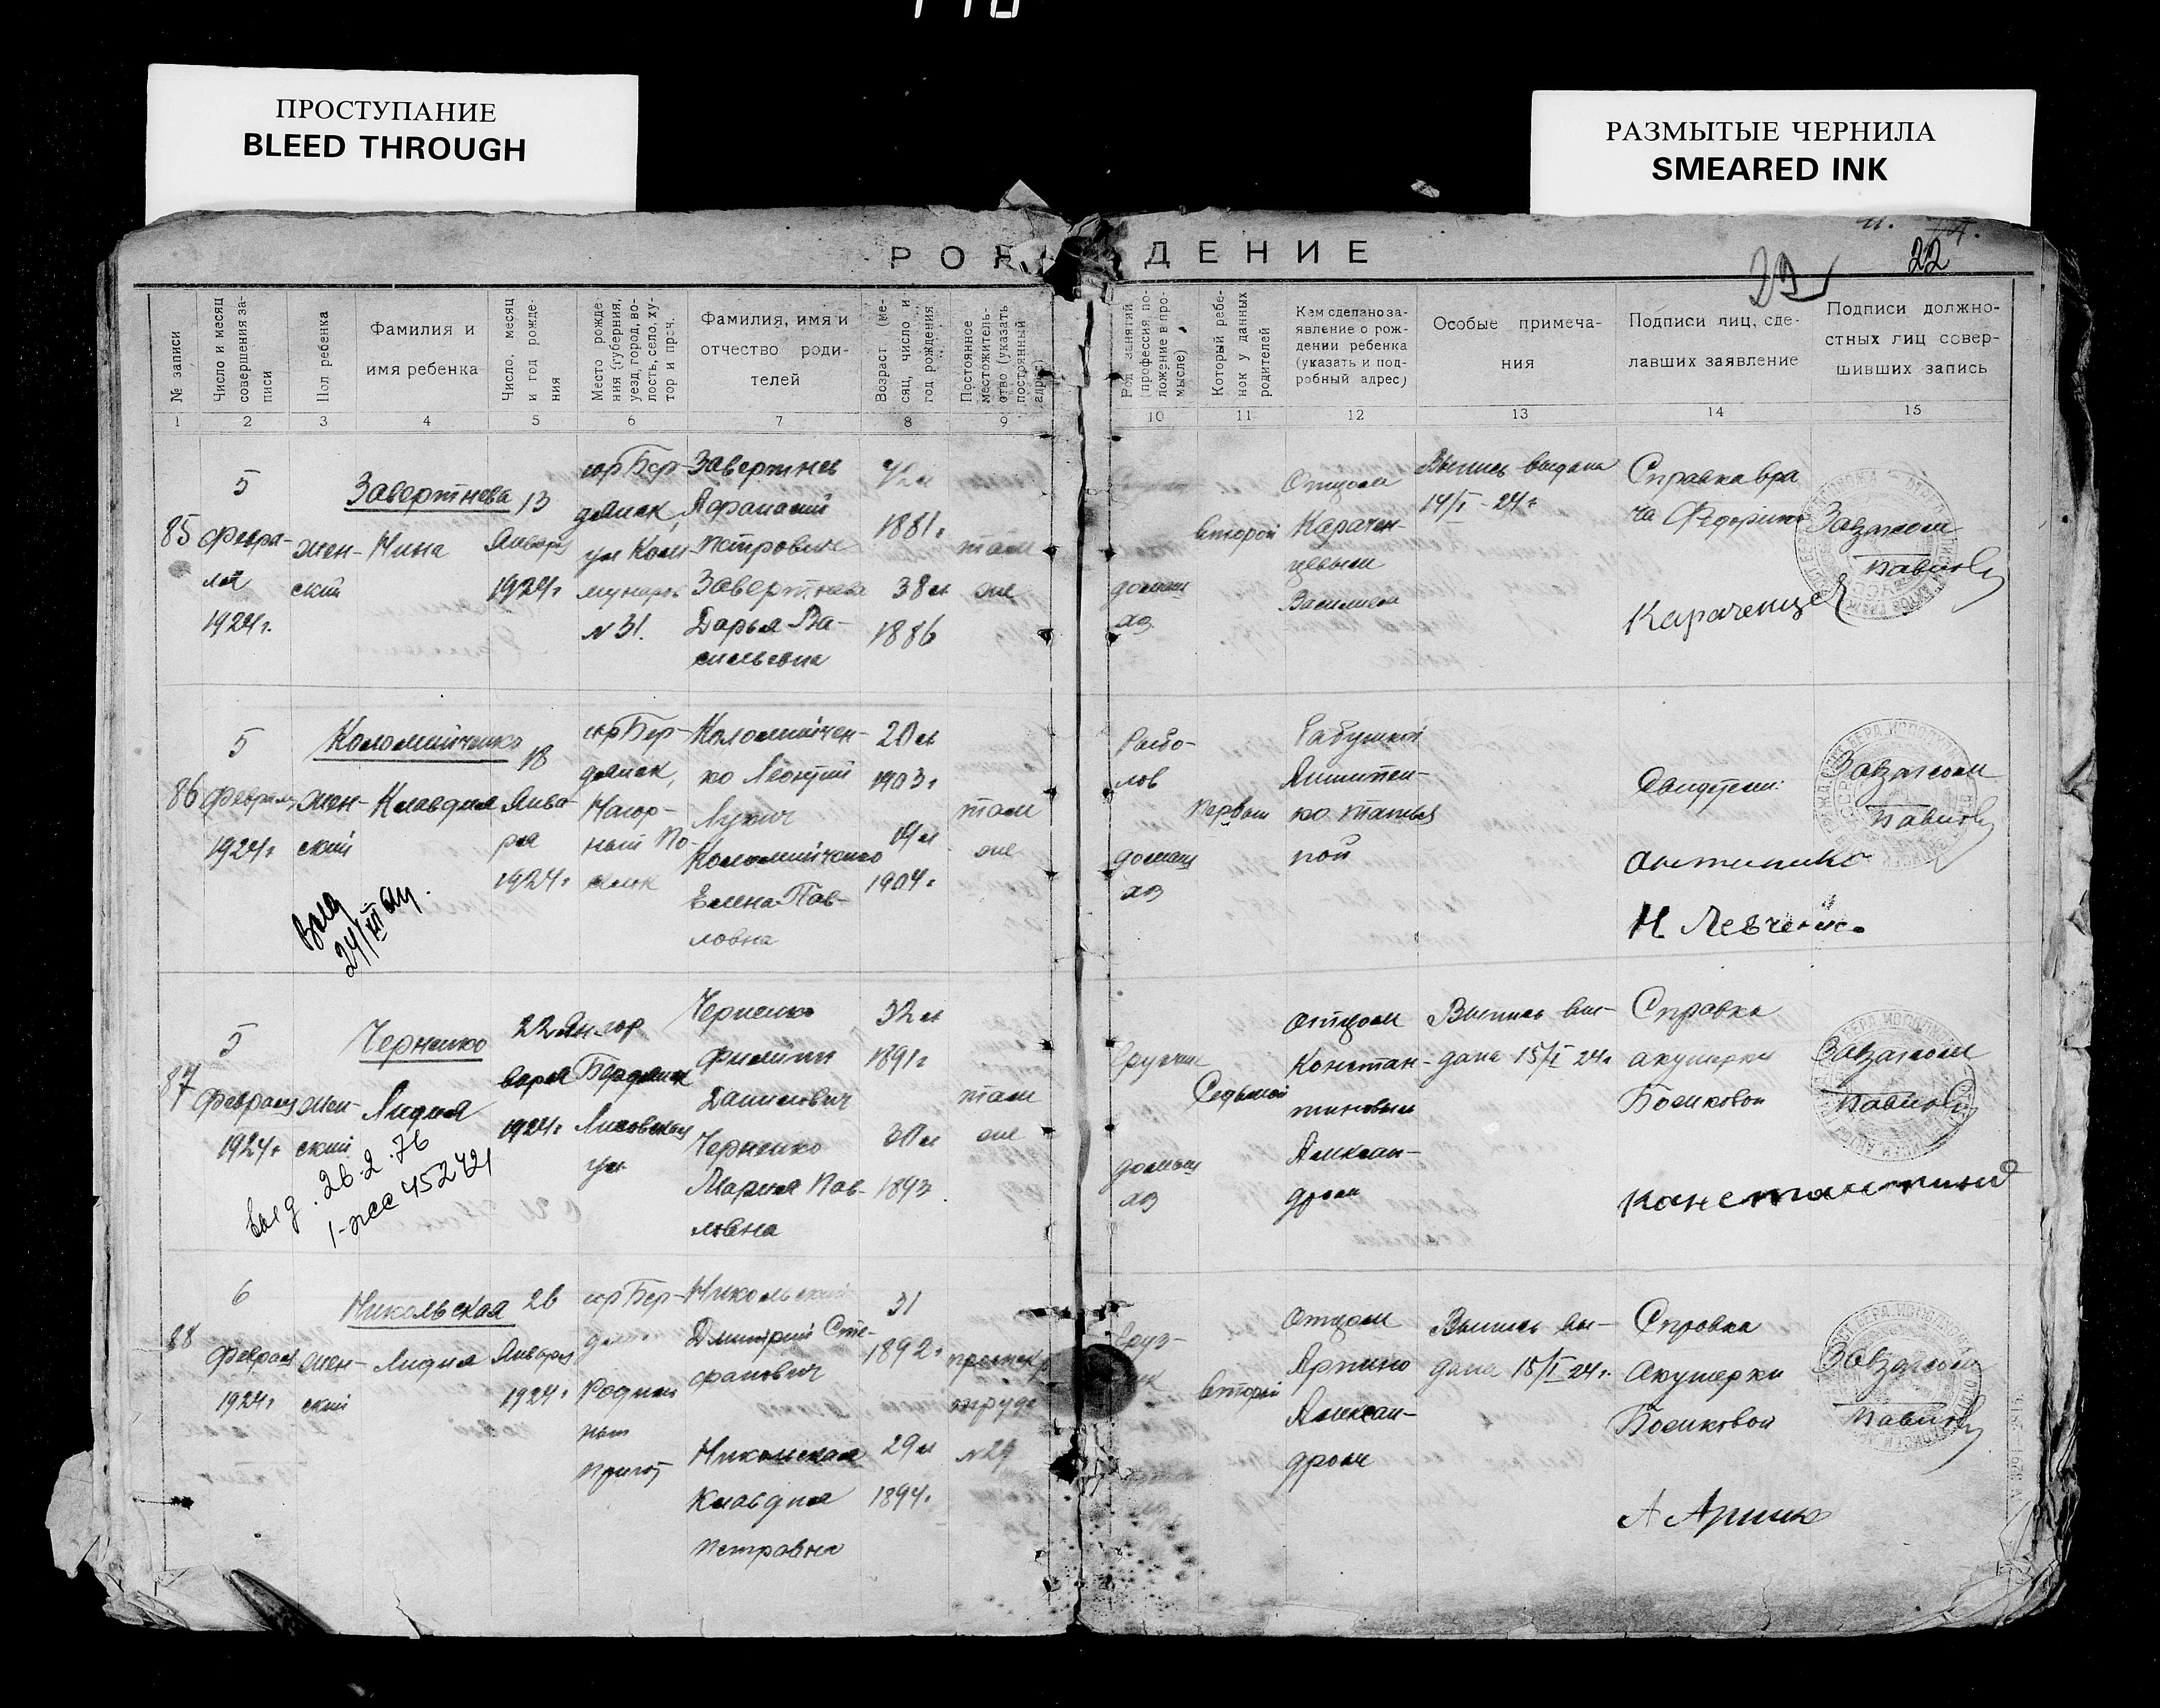 ПРОСТУПАНИЕ
BLEED THROUGH
РАЗМЫТЫЕ ЧЕРНИЛА
SMEARED INK
РОЖДЕНИЕ
22
№ записи
Число и месяц совершения записи
Пол ребенка
Фамилия и
имя ребенка
Число, месяц и год рождения
Место рождения (губерния, уезд, город, волость, село, хутор и проч.
Фамилия, имя и
отчество роди-
телей
Возраст (месяц, число и год рождения
Постоянное местожительство (указать постоянный адрес)
Род занятий (профессия, положение в промысле)
Который ребенок у данных родителей
Кем сделано за-
явление о рож-
дении ребенка
(указать и под-
робный адрес)
Особые примеча-
ния
Подписи лиц, сде-
лавших заявление
Подписи должно-
стных лиц совер-
шивших запись
1 2 3 4 5 6 7 8 9 10 11 12 13 14 15
85
5
Февра-
ля
1924г.
жен-
ский
Завертнева
Нина
13
Января
1924г
гор Бер-
дянск,
ул Ком
мунаров
N 31.
Завертнев
Афанасий
Петрович
Завертнева
Дарья Ва-
сильевна
1881г
38 л
1886
там
же
домаш
хоз
второй
Отцом
Карачен-
цевым
Выпись выдана
14/I - 24г
Справка вра
ча
Караченцев
Завзагсом
Павлов
86
5
Февраля
1924г
жен-
ский
Коломийченко
Клавдия
18
Янва-
ря
1924г
гор Бер-
дянск,
Нагор-
ный По-
селок
Коломийчен-
ко Леонтий
Лукич
Коломийченко
Елена Пав-
ловна
20 л
1903г
19 л
1904г
там
же
Рыбо-
лов
домаш
хоз
первый
Н. Левченко
Завзагсом
Павлов
Выд
24/III 24.
87
5
Февраля
1924г
жен-
ский
Черненко
Лидия
22 Ян-
варя
1924г
гор
Бердянск
ул
Черненко
Филипп
Данилович
Черненко
Мария Пав-
ловна
32 л
1891г
30 л
1893
там
же
домаш
хоз
Седьмой
отцом
Констан-
тиновым
Алексан-
дром
Выпись вы-
дана 15/I 24г
Справка
акушерки
Босиковой
Константинов
Завзагсом
Павлов
Выд. 26.2.76
88
6
Февраля
1924г
жен-
ский
Никольская
Лидия
26
Января
1924г
гор Бер-
Родиль
ный
Приют
Никольский
Дмитрий Сте-
фанович
Никольская
Клавдия
Петровна
31
1892г
29 л
1894г
проспект
труда
N 29
второй
отцом
Алексан-
дром
Выпись вы-
дана 15/I 24г.
Справка
Акушерки
Босиковой
Завзагсом
Павлов